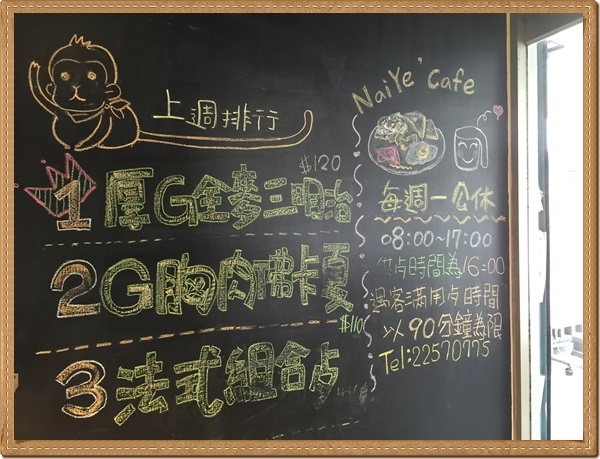 上週排行
$120
1 厚G全麥三明治
2 G胸肉佛卡夏
$110
3 法式組合点
NaiYe' Cafe
每週一公休
08:00~17:00
供点時間為16:00
遇客滿用点時間
以90分鐘為限
Tel:22570775